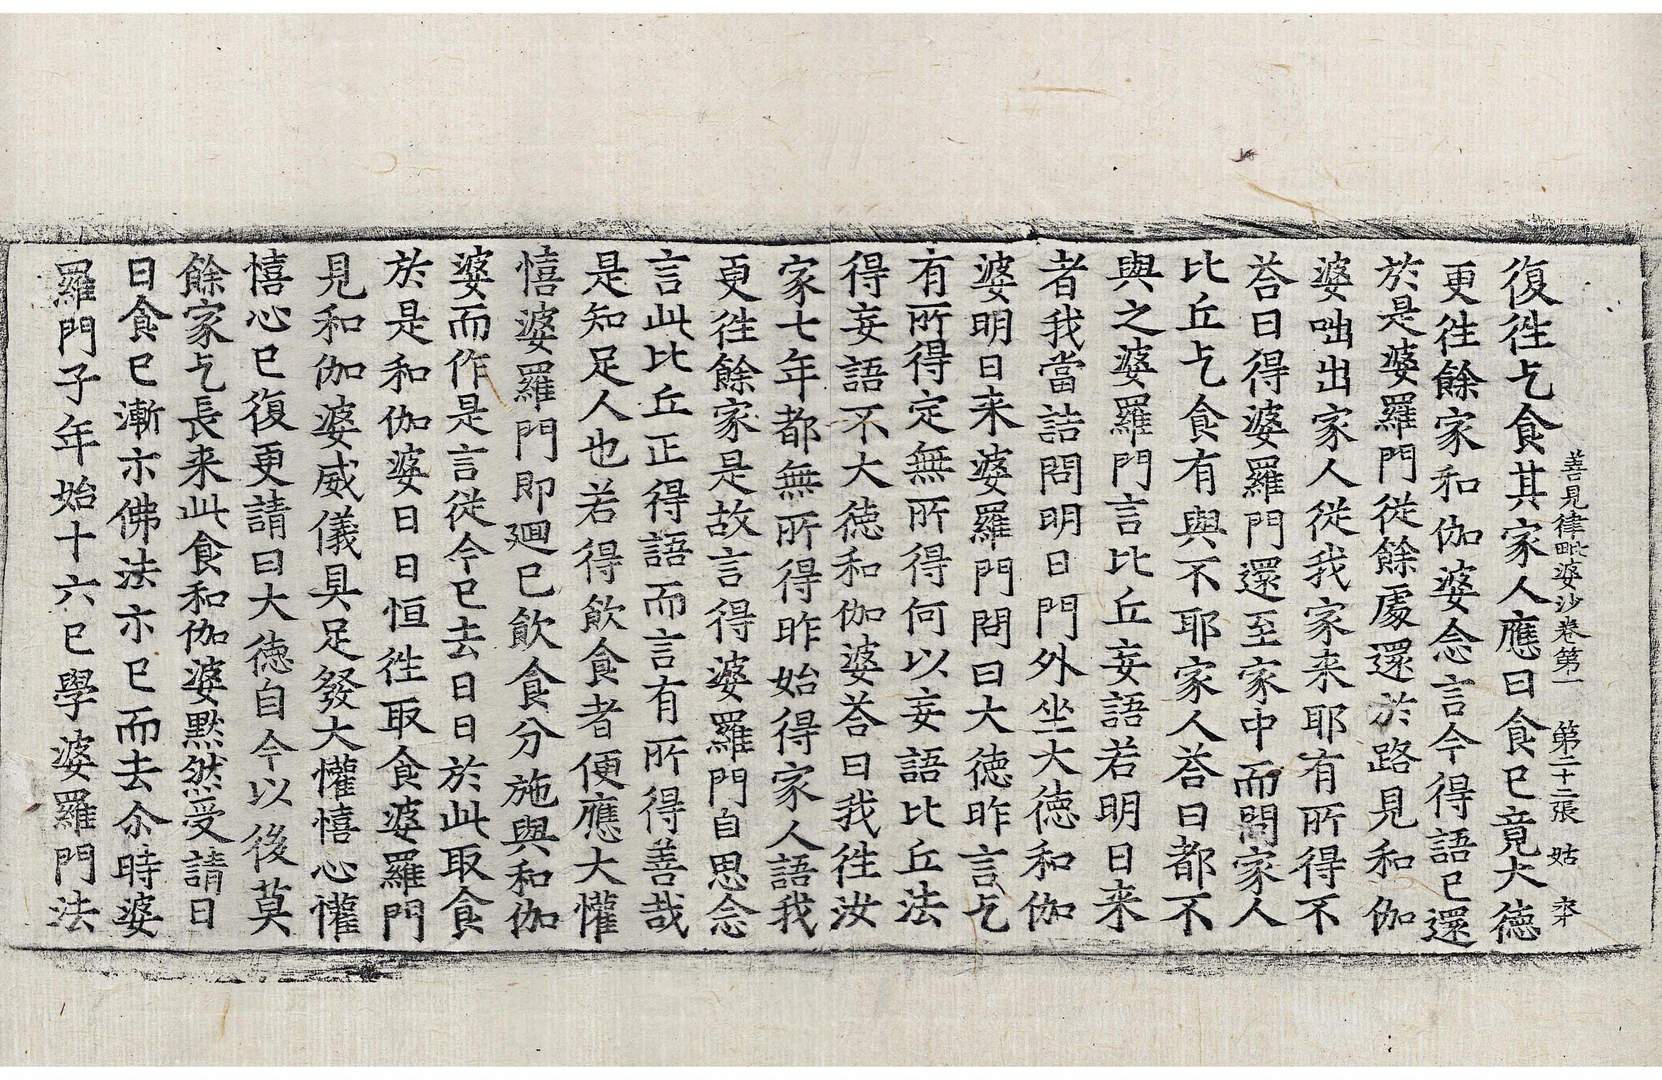 善見律毗婆沙卷第一 第二十二張 姑
復徃乞食其家人應曰食已竟大德
更徃餘家和伽婆念言今得語已還
於是婆羅門從餘處還於路見和伽
婆咄出家人從我家来耶有所得不
荅曰得婆羅門還至家中而問家人
比丘乞食有與不耶家人荅曰都不
與之婆羅門言比丘妄語若明日来
者我當詰問明日門外坐大德和伽
婆明日来婆羅門問曰大德昨言乞
有所得定無所得何以妄語比丘法
得妄語不大德和伽婆荅曰我徃汝
家七年都無所得昨始得家人語我
更徃餘家是故言得婆羅門自思念
言此比丘正得語而言有所得善哉
是知足人也若得飲食者便應大懽
憘婆羅門即迴已飲食分施與和伽
婆而作是言從今已去日日於此取食
於是和伽婆日日恒徃取食婆羅門
見和伽婆威儀具足發大懽憘心懽
憘心已復更請曰大德自今以後莫
餘家乞長来此食和伽婆黙然受請日
日食已漸示佛法示已而去尒時婆
羅門子年始十六已學婆羅門法